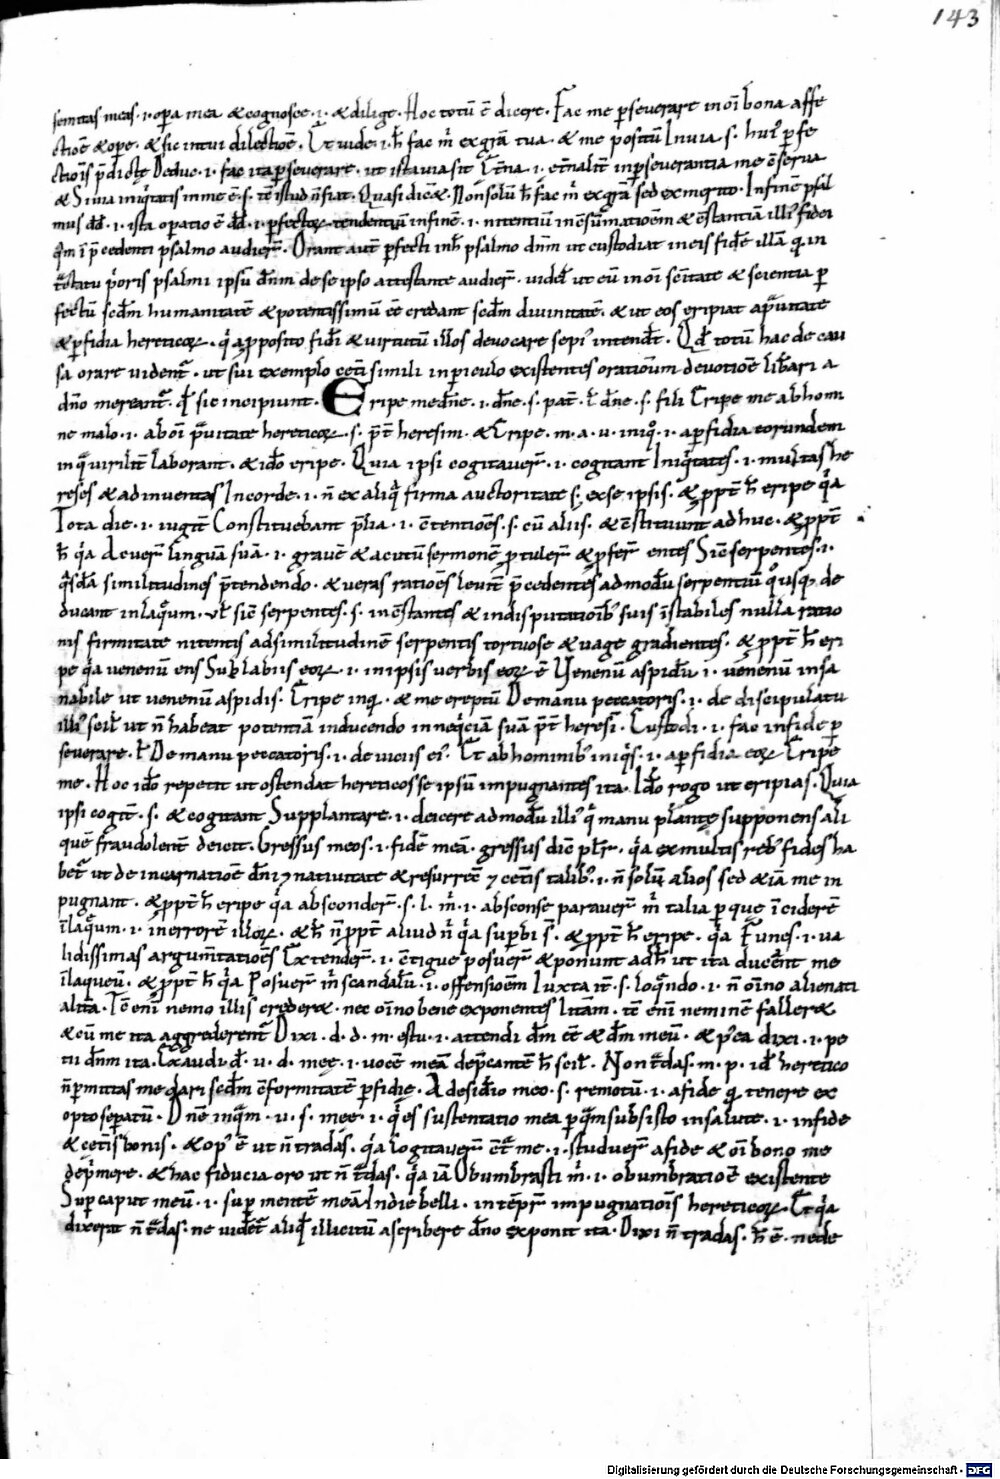 143
semitas meas .i. opa mea & cognosce .i. & dilige. Hoc totū ē dicere. Fac me pseverare in oī bona affe
ctiōe & ope. & sic intui dilectiōe. Et vide .i. h̄ fac m̄ ex grā tua. & me positū In via .s. hui' pfe
ctiōis p̄dictę Deduc .i. fac ita pseverare. ut ista via sit Etna .i. etnalit̄ in pseverantia me c̄serva
& Si via iniqtatis in me ē .s. tē istud n̄ fiat. Quasi dicā. Non solū h̄ fac m̄ ex grā sed ex merito. In finē psal
mus dd̄ .i. ista opatio ē dd̄ .i. pfectoꝝ tendentiū in finē .i. nitentiū in c̄sūmatioēm & c̄stantiā illi' fidei
qm ī p̄cedenti psalmo audier̄. Orant aut̄ pfecti in h̄ psalmo dn̄m ut custodiat in eis fidē illā q in
totatu p̄oris psalmi ipsū dn̄m de se ipso attestante audier̄. videl ut eū in oī sc̄itate & scientia p
fectū scdm humanitatē & potentissimū eē credant scdm divinitatē. & ut eos eripiat a p̄vitate
& pfidia hereticoꝝ. q a pposito fidi & virtutū illos devocare sepi' intendt̄. Qd totū hac de cau
sa orare vident̄. ut sui exemplo cet̄i simili in piculo existentes orationum devotiōe libari a
dn̄o mereant̄. q sic incipiunt. Eripe me dn̄e .i. dn̄e .s. pat̄. ł dn̄e .s. fili Eripe me ab homi
ne malo .i. ab oī p̄vitate hereticoꝝ .s. p̄t̄ heresim. & Eripe .m. a. v. iniq .i. a pfidia eorundem
in q virilit̄ laborant. & ido eripe. Quia ipsi cogitaver̄ .i. cogitant Iniqtates .i. multas he
reses & adinventas In corde .i. n̄ ex aliq firma auctoritate .s. ex se ipsis. & ppt̄ h̄ eripe qa
Tota die .i. iugit̄ Constituebant p̄lia .i. c̄tentiōes .s. cū aliis. & c̄stituunt adhuc. & ppt̄
h̄ qa Acuer̄ linguā suā .i. gravē & acutū sermonē ptuler̄ & pfer̄ entes Sic̄ serpentes .i.
qsdā similitudines p̄tendendo. & veras ratiōes levit̄ p̄cedentes ad modū serpentiū quosq de
ducant in laqum. vł sic̄ serpentes .s. in c̄stantes & in disputatioīb' suis īstabiles nulla ratio
nis firmitate nitentis ad similitudinē serpentis tortuose & vage gradientes. & ppt̄ h̄ eri
pe qa venenū ens Sub labiis eoꝝ .i. in ipsis verbis eoꝝ ē Venenū aspidū .i. venenū insa
nabile ut venenū aspidis. Eripe inq. & me ereptū De manu peccatoris .i. de discipulatu
illi' scil ut n̄ habeat potentiā inducendo in neqciam suā p̄t̄ heresī. Custodi .i. fac in fide p
severare. ł De manu peccatoris .i. de viciis ei'. Et ab hominib' iniqs .i. a pfidia eoꝝ Eripe
me. Hoc ido repetit ut ostendat hereticos se ipsū impugnantes ita. Ido rogo ut eripias. Quia
ipsi cogit̄ .s. & cogitant Supplantare .i. deicere ad modū illi' q manu plantę supponens ali
quē fraudolent̄ deicit. Gressus meos .i. fidē meā. gressus dic̄ plr. qa ex multis reb' fides ha
bet̄ ut de incarnatiōe dn̄i ⁊ nativitate & resurrect̄ ⁊ cet̄is talib' .i. n̄ solū alios sed & iā me in
pugnant. & ppt̄ h̄ eripe qa absconder̄ .s. l. m̄ .i. absconse paraver̄ m̄ talia p que īciderē
ī laqum .i. in errorē illoꝝ. & h̄ n̄ ppt̄ aliud n̄ qa supbi s̄. & ppt̄ h̄ eripe. qa Funes .i. va
lidissimas argum̄tatioēs Extender̄ .i. c̄tigue posuer̄ & ponunt ad h̄ ut ita ducer̄t me
ī laqueū. & ppt̄ h̄ qa Posuer̄ m̄ scandalū .i. offensioēm Iuxta it̄ .s. loqndo .i. n̄ oīno alienati
alit̄a. Tc̄ enī nemo illis crederet. nec oīno bene exponentes litam. tc̄ enī neminē fallerēt
& cū me ita aggrederent̄ Dixi .d. d. m. es tu .i. attendi dm eē & dm meū. & p̄ea dixi .i. pe
tii dn̄m ita. Exaudi .d. v. d. meę .i. vocē meā dep̄cantē h̄ scil. Non tdas .m. p. id heretico
n̄ pmittas me dari scdm c̄formitatē pfidię. A desidio meo .s. remotū .i. a fide q tenere ex
opto sepatū. Dn̄e inqm .v. s. meę .i. qes sustentatio mea p qm subsisto in salute .i. in fide
& cet̄is bonis. & op' ē ut n̄ tradas. qa Cogitaver̄ c̄t̄ me .i. studuer̄ a fide & oī bono me
dep̄mere. & hac fiducia oro ut n̄ tdas. qa iā Obumbrasti m̄ .i. obumbratiōe existente
Sup caput meū .i. sup mentē meā In die belli. in tēpr impugnatiōis hereticoꝝ. Et qa
dixerat n̄ tdas. ne videt̄ aliqd illicitū ascribere dn̄o exponit ita. Dixi n̄ tradas. h̄ ē. ne de
Digitalisierung gefördert durch die Deutsche Forschungsgemeinschaft - DFG